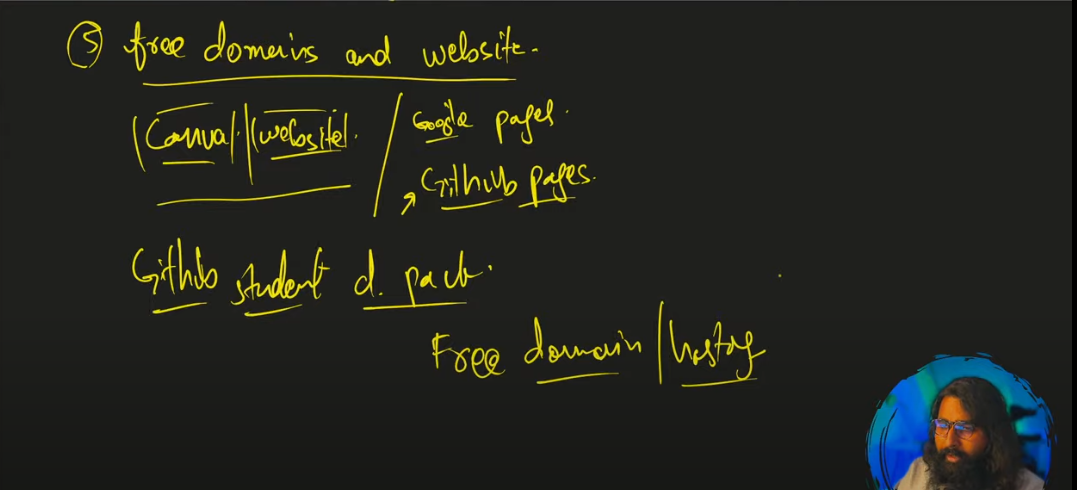 ⑤ free domains and website.
|Canva.| |website|. / Google pages.
→ Github pages.
Github student d. pack.
Free domain / hosting